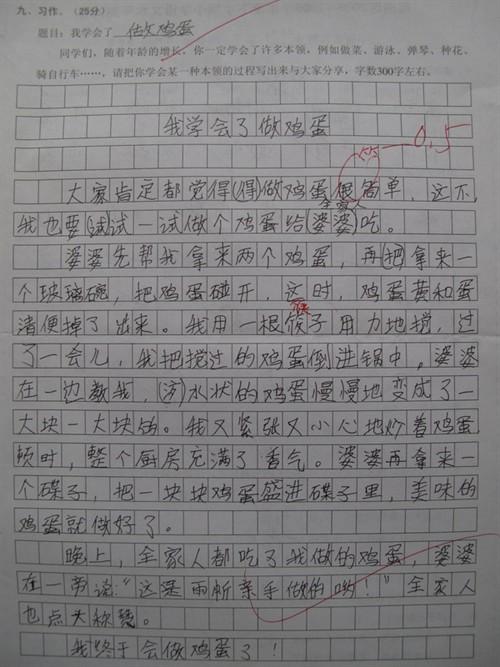 九、习作。（25分）
题目：我学会了 做鸡蛋
同学们，随着年龄的增长，你一定学会了许多本领，例如做菜、游泳、弹琴、种花、
骑自行车……，请把你学会某一种本领的过程写出来与大家分享，字数300字左右。
我学会了做鸡蛋
竺 —0.5
大家肯定都觉得(得)做鸡蛋很简单，这不，
全家人
我也要(试)试一试做个鸡蛋给婆婆吃。
婆婆先帮我拿来两个鸡蛋，再(把)拿来一
个玻璃碗，把鸡蛋碰开，这时，鸡蛋黄和蛋
清便掉了出来。我用一根筷子用力地搅，过
了一会儿，我把搅过的鸡蛋倒进锅中。婆婆
在一边教我，水状的鸡蛋慢慢地变成了一
大块一大块的。我又紧张又小心地炒着鸡蛋
顿时，整个厨房充满了香气。婆婆再拿来一
个碟子，把一块块鸡蛋盛进碟子里，美味的
鸡蛋就做好了。
晚上，全家人都吃了我做的鸡蛋，婆婆
在一旁说：“这是雨昕亲手做的哟！”全家人
也点大称赞。
我终于会做鸡蛋了！